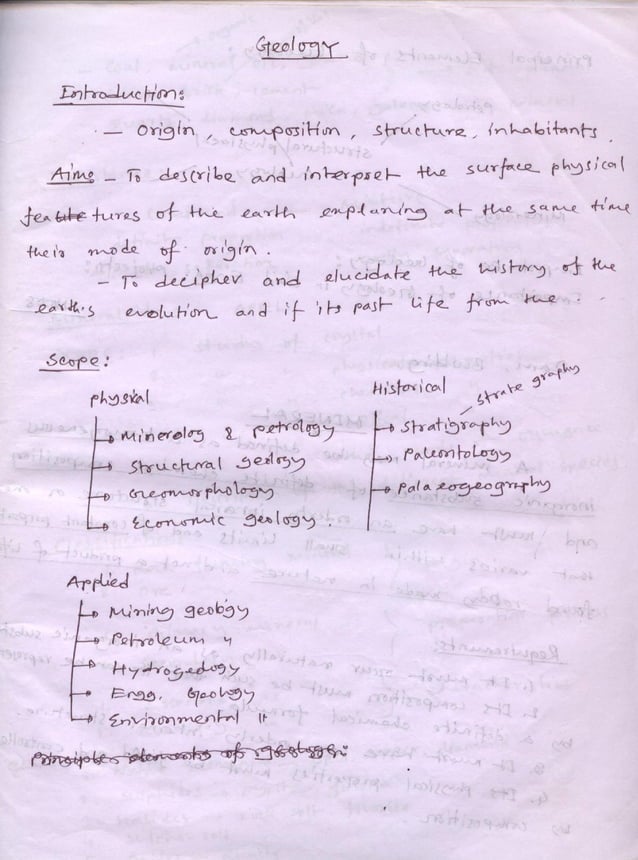 Geology
Introduction:
- Origin, composition, structure, inhabitants.
Aims - To describe and interpret the surface physical
features of the earth explaning at the same time
their mode of origin.
- To decipher and elucidate the history of the
earth's evolution and if its past life from the .
Scope:
Physial
Minerolog & petrology
Structural geology
Geomorphology
Economic geology
Historical
strate graphy
Stratigraphy
Paleontology
Palaeogeography
Applied
Mining geology
Petroleum "
Hydrogeology
Engg. Geology
Environmental "
Principles elements of geology: